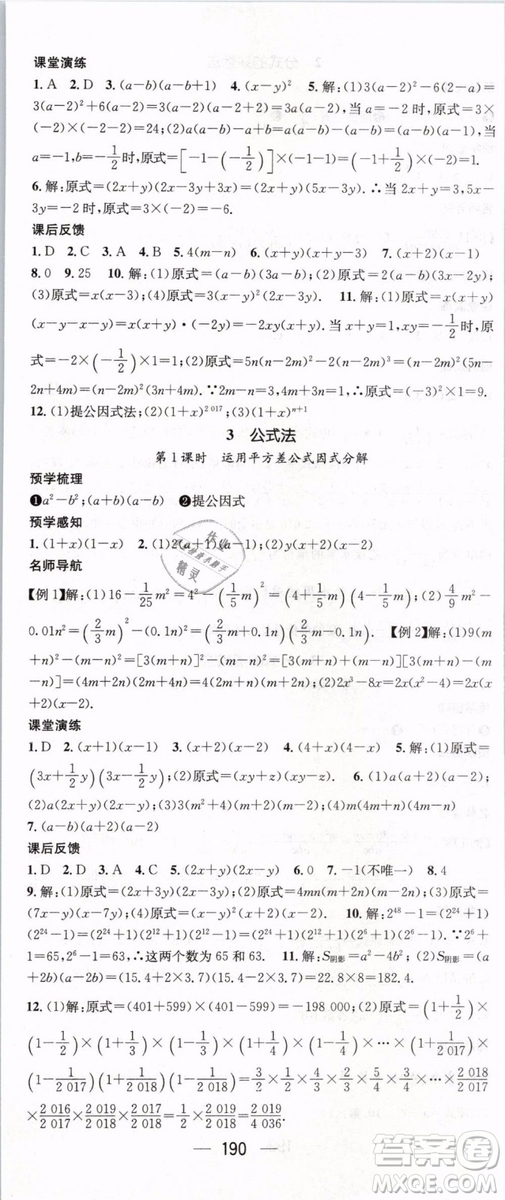 课堂演练
1. A 2. D 3. (a-b)(a-b+1) 4. (x-y)² 5. 解:(1)3(a-2)²-6(2-a)=
3(a-2)²+6(a-2)=3(a-2)(a-2+2)=3a(a-2). 当 a=-2 时,原式=3×
(-2)×(-2-2)=24;(2)原式=a(a-b)-(a-b)=(a-b)(a-1), 当
a=-1,b=-1/2时,原式=[-1-(-1/2)]×(-1-1)=(-1+1/2)×(-2)=1.
6. 解:原式=(2x+y)(2x-y+3y)=(2x+y)(2x+2y).∴当 2x+y=3,x-
3y=-2时,原式=3×(-2)=-6.
课后反馈
1. D 2. C 3. A 4. D 5. 4(m-n) 6. (x+y)(x+y-3) 7. (x+2)(x-1)
8. 0 9. 25 10. 解:(1)原式=(x+y)(a-b);(2)原式=2(a-3)(a-2);
(3)原式=x(x-3);(4)原式=2(x+y)(3x-2). 11. 解:(1)原式=x(x+y)
(x-y-x-y)=x(x+y)·(-2y)=-2xy(x+y). 当 x+y=1,xy=-1/2时,原
式=-2×(-1/2)×1=1;(2)原式=5n(n-2m)²-2(2m-n)³=(2m-n)²(5n-
2n+4m)=(2m-n)²(3n+4m).∵2m-n=-3,4m+3n=1.∴原式=(-3)²×1=9.
12. (1)提公因式法;(2)(1+x)^2 017;(3)(1+x)^n+1
3 公式法
第 1 课时 运用平方差公式因式分解
预学梳理
❶a²-b²;(a+b)(a-b) ❷提公因式
预学感知
1. (1+x)(1-x) 2. (1)2(a+1)(a-1);(2)y(x+2)(x-2)
名师导航
【例 1】解:(1)16-1/25m²=4²-(1/5m)²=(4+1/5m)(4-1/5m);(2)4/9m²-
0.01n²=(2/3m)²-(0.1n)²=(2/3m+0.1n)(2/3m-0.1n). 【例 2】解:(1)9(m
+n)²-(m-n)²=[3(m+n)+(m-n)][3(m+n)-
(m-n)]=(4m+2n)(2m+4n)=4(2m+n)(m+2n);(2)2x³-8x=2x(x²-4)=2x(x+2)(x-2).
课堂演练
1. D 2. (x+1)(x-1) 3. (x+2)(x-2) 4. C 5. 解:(1)原式=
(3x+1/2y)(3x-1/2y);(2)原式=(xy+z)(xy-z) 6. (1)a(a+2)(a-2);
(2)a(y+2x)(y-2x);(3)2(m+1)(m-1);(4)2(m+2)(m-2)
7. (a-b)(a+2)(a-2)
课后反馈
1. D 2. D 3. A 4. C 5. (2x+y)(2x-y) 6. 0 7. -1(不唯一) 8. 4
9. 解:(1)原式=(2x+3y)(2x-3y);(2)原式=4mn(m+2n)(m-2n);(3)原式=
(7x-y)(x-7y);(4)原式=(x-y)(3a+2b)(3a-2b). 10. 解:2⁴⁸-1=(2²⁴+1)
(2²⁴-1)=(2²⁴+1)(2¹²+1)(2¹²-1)=(2²⁴+1)(2¹²+1)(2⁶+1)(2⁶-1).∵2⁶
+1=65,2⁶-1=63,∴这两个数为 65 和 63. 11. 解:(1)S阴影=a²-4b²;(2)S阴影=(a+
2b)(a-2b)=(15.4+2×3.7)(15.4-2×3.7)=22.8×8=182.4.
12. (1)解:原式=(401+599)×(401-599)=-198 000;(2)原式=(1+1/2)×
(1-1/2)×(1+1/3)×(1-1/3)×(1+1/4)×(1-1/4)×…×(1+1/2 017)×
(1-1/2 017)(1+1/2 018)(1-1/2 018)=3/2×1/2×4/3×2/3×5/4×3/4×…×2 018/2 017
×2 016/2 017×2 019/2 018×2 017/2 018=1/2×2 019/2 018=2 019/4 036.
190
作业
精灵
答案圈